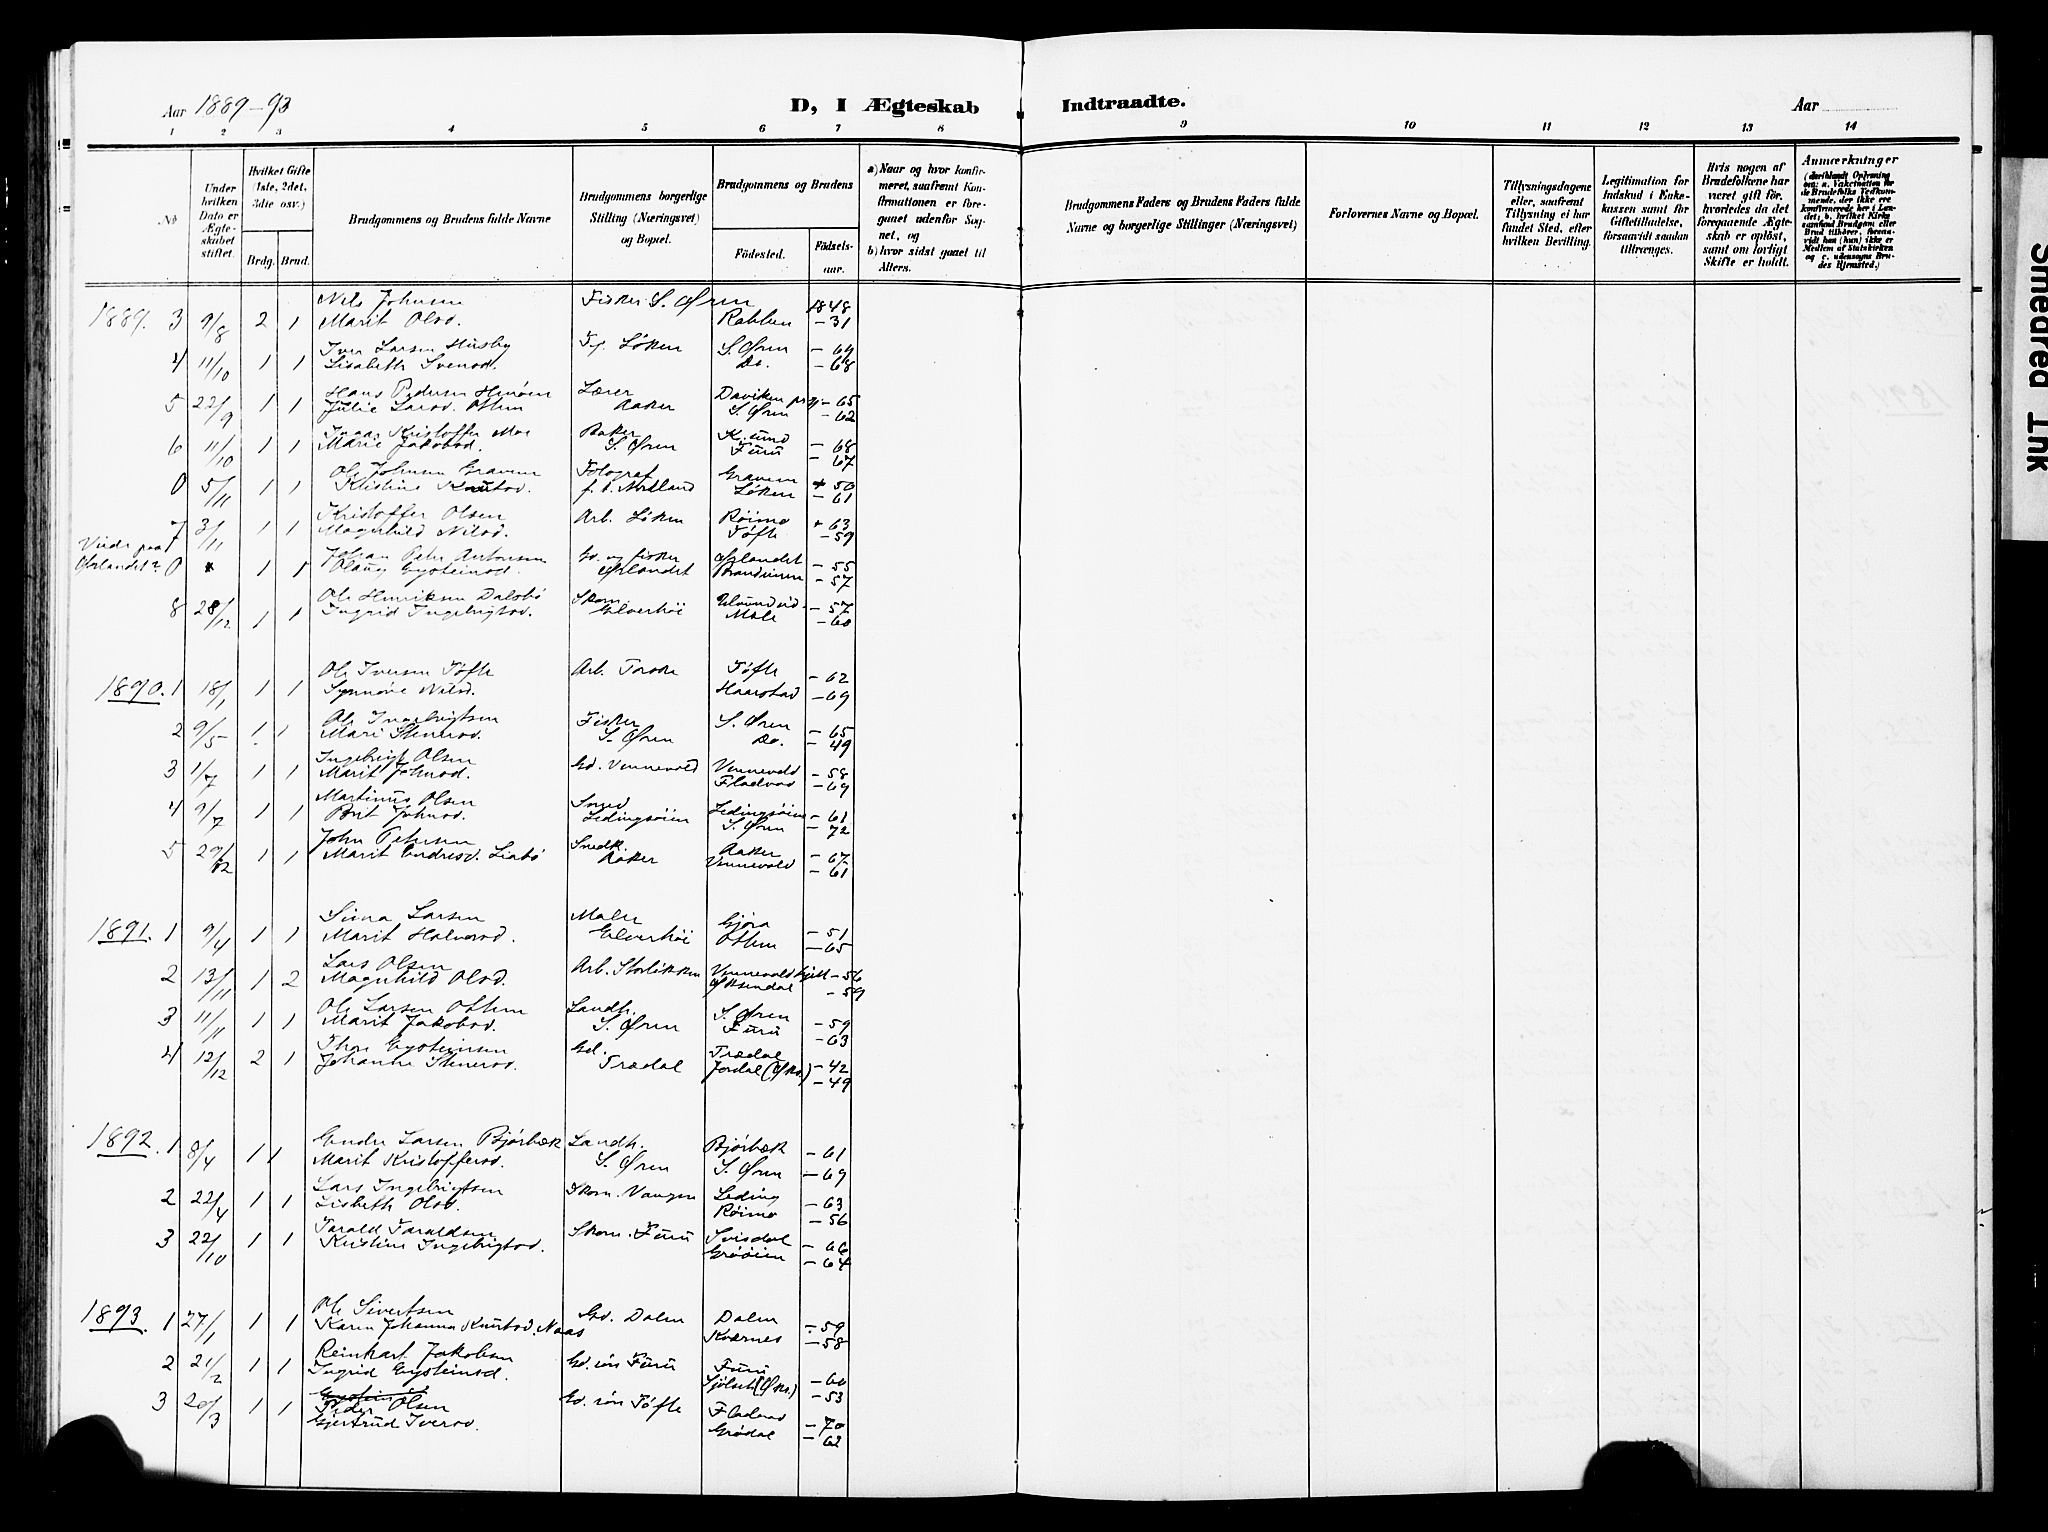 Aar 1889-93
D, I Ægteskab
Indtraadte.
Aar
1 2 3 4 5 6 7 8 9 10 11 12 13 14
No
Under hvilken Dato er Ægteskabet stiftet.
Hvilket Gifte (1ste, 2det, 3dte osv.)
Brdg. Brud.
Brudgommens og Brudens fulde Navne
Brudgommens borgerlige Stilling (Næringsvei) og Bopæl.
Brudgommens og Brudens
Födested. Födselsaar.
a) Naar og hvor konfirmeret, saafremt Konfirmationen er foregaaet udenför Sognet, og
b) hvor sidst gaaet til Alters.
Brudgommens Faders og Brudens Faders fulde Navne og borgerlige Stillinger (Næringsvei)
Forlovernes Navne og Bopæl.
Tillysningsdagene eller, saafremt Tillysning ei har fundet Sted, efter hvilken Bevilling.
Legitimation for Indskud i Enkekassen samt for Giftetilladelse, forsaavidt saadan tiltrænges.
Hvis nogen af Brudefolkene har været gift för, hvorledes da det foregaaende Ægteskab er oplöst, samt om lovligt Skifte er holdt.
Anmærkninger
1889. 3 9/8 2 1 Nils Johnsen Fisker S. Øren 1848
Marit Olsd. Rabben -31
4 11/10 1 1 Iver Larsen Husby Løken S. Øren -64
Lisabeth Svensd. Do. -68
5 22/9 1 1 Hans Pedersen Lærer Daviken -65
Julie Larsd. Ottem Aaker S. Øren -62
6 11/10 1 1 Kristoffer Moe Baker K.sund -68
Marie Jakobsd. S. Øren Furu -67
0 5/11 1 1 Ole Johnsen Gravem Fotograf Gravem 50
Kristine Knutsd. Løken -61
7 3/11 1 1 Kristoffer Olsen Arb. Løken Røimo 63
Magnhild Nilsd. Tøfte -59
Viede paa Ørlandet? 0 1 1 Johan Peter Antonsen Gd. og fisker Ørlandet -55
Olaug Eysteinsd. Ørlandet -57
8 28/12 1 1 Ole Henriksen Dalsbø Skom. -57
Ingrid Ingebrigtsd. Elverhøi Mæle -60
1890. 1 18/1 1 1 Ole Iversen Tøfte Arb. Tøfte -62
Synnøve Nilsd. Haarstad -69
2 9/5 1 1 Ole Ingebrigtsen Fisker S. Øren -65
Mari Stenersd. S. Øren Do. -49
3 1/7 1 1 Ingebrigt Olsen Gd. Vennevold Vennevold -58
Marit Johnsd. Fladvad -69
4 9/7 1 1 Martinus Olsen Smed Ledingsøien -61
Brit Johnsd. Ledingsøien S. Øren -72
5 29/12 1 1 John Petersen Snedk. Aaker -67
Marit Endresd. Liabø Aaker Vennevold -61
1891. 1 9/4 1 1 Larsen Maler Gjøra -51
Marit Halvorsd. Elverhøi Ottem -65
2 13/11 1 2 Lars Olsen Arb. Storlikken Vennevold -56
Magnhild Olsd. Øksendal -59
3 11/11 1 1 Ole Larsen Ottem Landh. S. Øren -59
Marit Jakobsd. S. Øren Furu -63
4 12/12 2 1 Thore Eysteinsen Gd. Trædal -42
Johanne Stenersd. Trædal Jordal (Øks.) -49
1892. 1 8/4 1 1 Endre Larsen Bjørbæk Landh. Bjørbæk -61
Marit Kristoffersd. S. Øren S. Øren -69
2 22/4 1 1 Lars Ingebrigtsen Skom. Vangen Leding -63
Lisbeth Olsd. Røimo -56
3 22/10 1 1 Tarald Taraldsen Skom. Furu Svisdal -66
Kristine Ingebrigtsd. Grøøien -64
1893. 1 27/1 1 1 Ole Sivertsen Gd. Dalen Dalen -59
Karen Johanna Knutsd. Naas Kværnes -58
2 21/2 1 1 Reinhart Jakobsen Gd. søn Furu Furu -60
Ingrid Eysteinsd. Sjølset (Øks.) -53
3 20/3 1 1 Peder Olsen Gd. søn Tøfte Fladvad -70
Gjertrud Iversd. Grødal -62
Smeared Ink